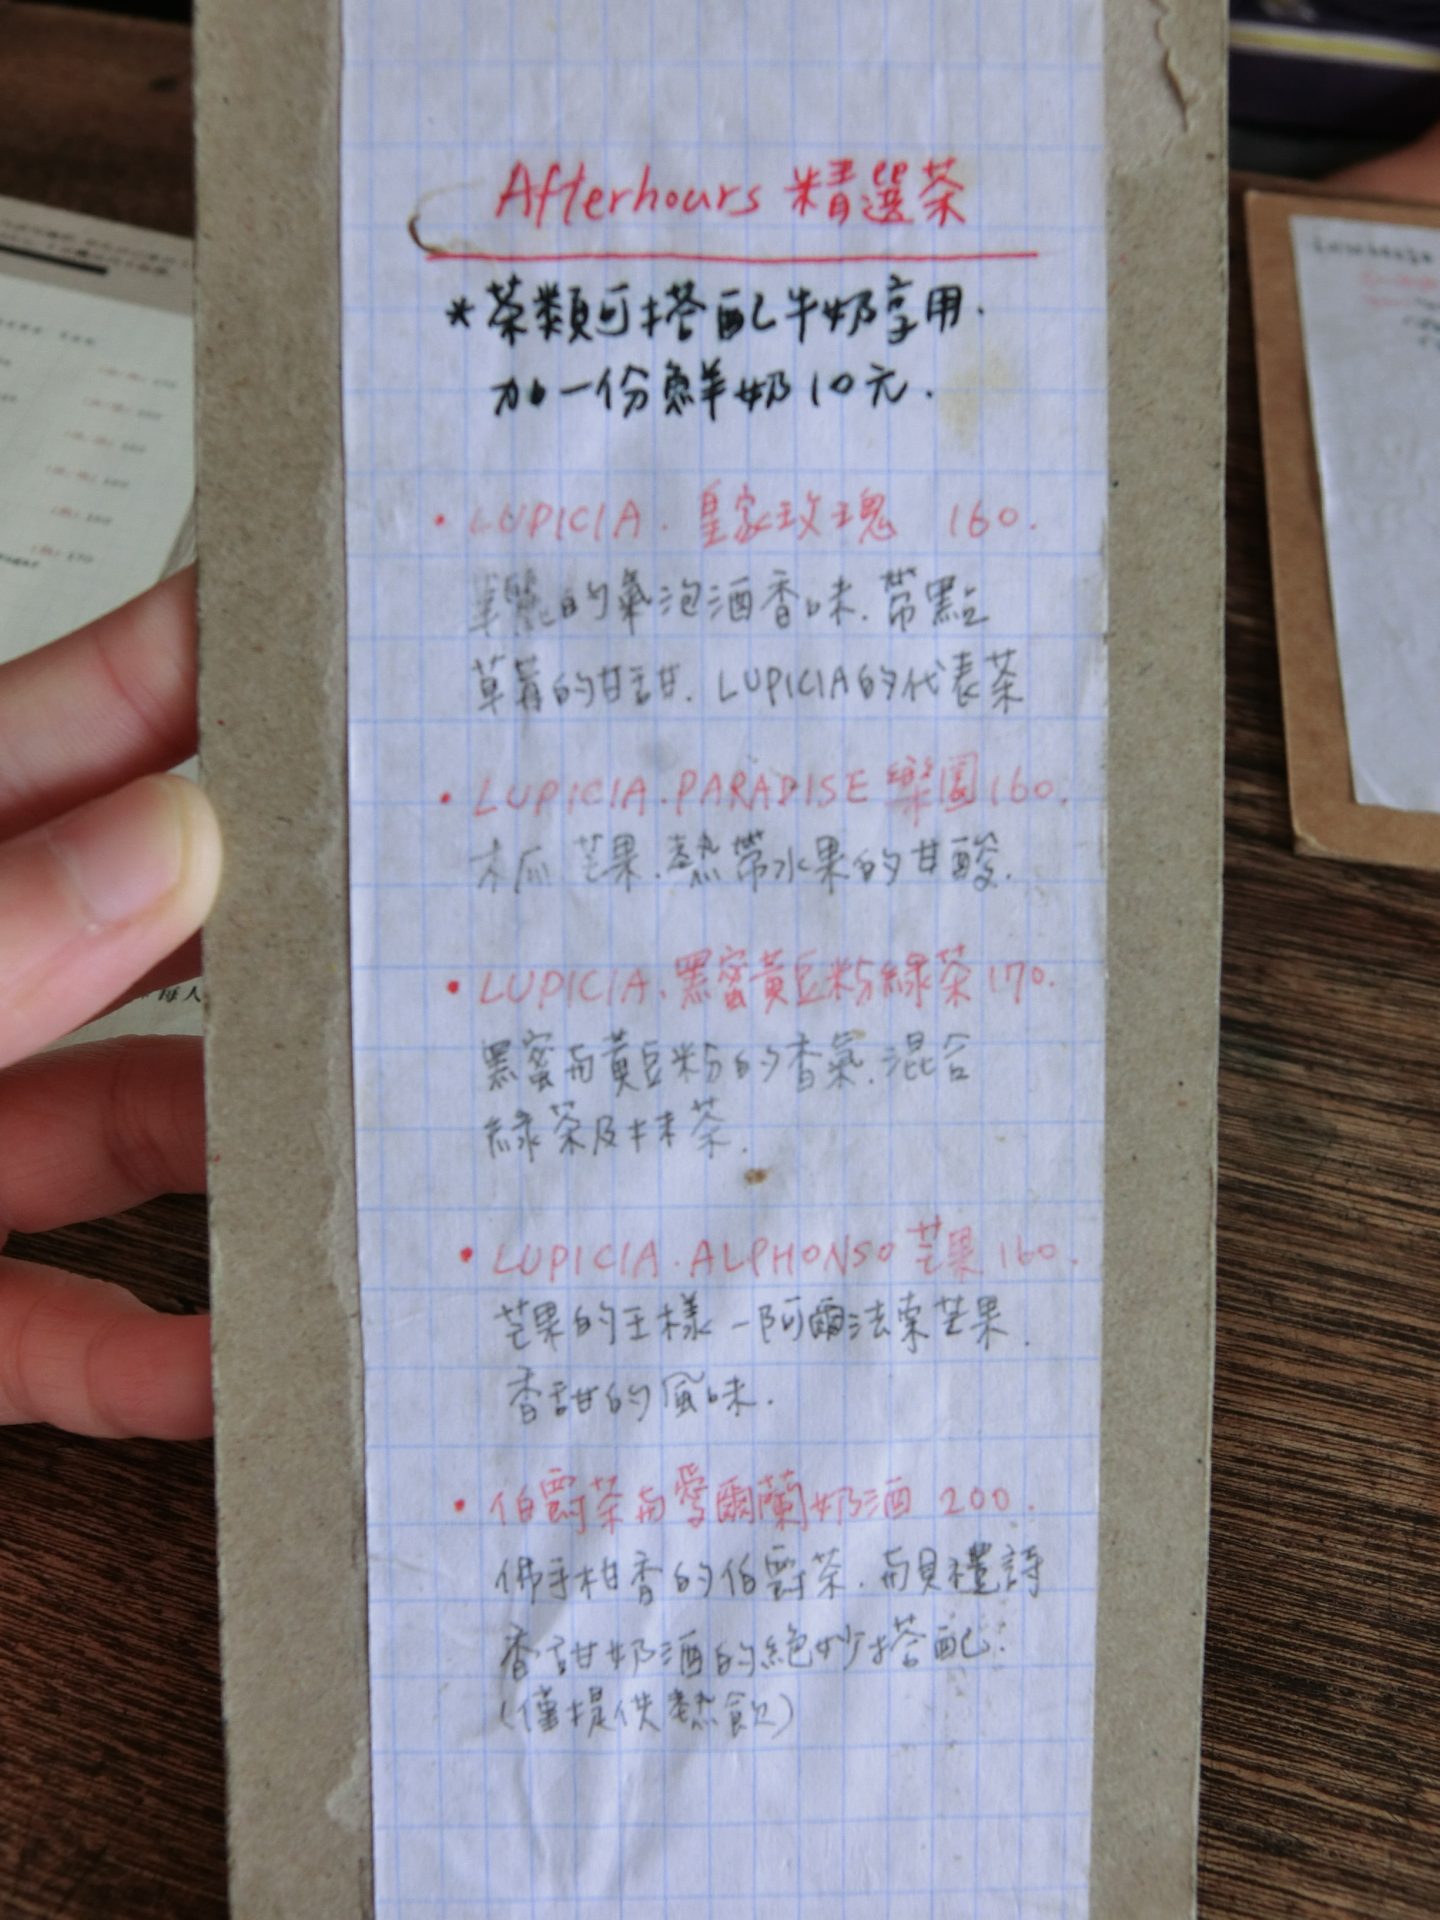 Afterhours 精選茶
*茶類可搭配牛奶享用.
加一份鮮奶10元.
• LUPICIA. 皇家玫瑰 160.
華麗的氣泡酒香味.帶點
草莓的甘甜. LUPICIA的代表茶
• LUPICIA.PARADISE 樂園160.
木瓜 芒果.熱帶水果的甘酸.
• LUPICIA.黑蜜黃豆粉綠茶170.
黑蜜與黃豆粉的香氣.混合
綠茶及抹茶.
• LUPICIA.ALPHONSO芒果160.
芒果的王様-阿爾法索芒果.
香甜的風味.
• 伯爵茶與愛爾蘭奶酒 200.
佛手柑香的伯爵茶.與貝禮詩
香甜奶酒的絕妙搭配.
(僅提供熱飲)
每人